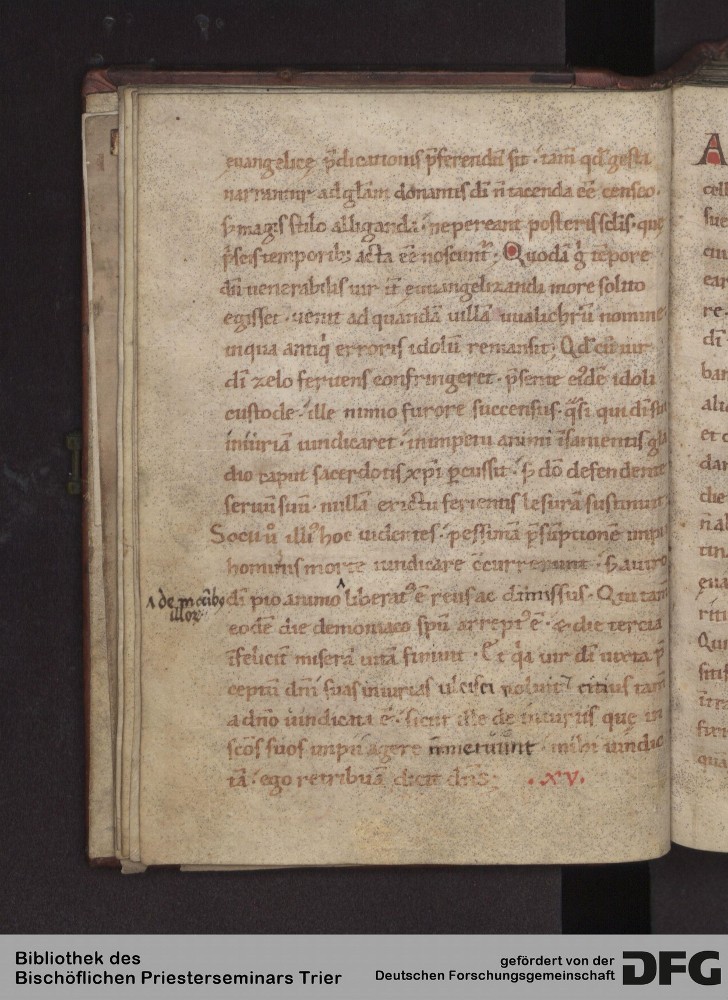 euangelicę p̄dicationis p̄ferendū sit · tam̄ qd̄ gesta
narrantur ad gl̄am donantis dī n̄ tacenda eē censeo ·
s; magis stilo alliganda · ne pereant posteris sc̄lis · quę
p̄seis temporib; acta eē noscunt᷑ ; Quodā g̊ tēpore
dū uenerabilis uir it̄ euuangelizandi more solito
egisset · uenit ad quandā uillā uualichrū nomine
in qua antiq̇ erroris idolū remansit ; Qd̄ cū uir
dī zelo feruens confringeret · p̄sente eiꝰdē idoli
custode · ille nimio furore succensus · q̄si qui dī sui
iniuriā uindicaret · in impetu animi īsanientis gla
dio caput sacerdotis xp̄i ꝑcussit · s; dō defendente
seruū suū · nullā ex ictu ferientis lesurā sustinuit
Socii ů illiꝰ hoc uidentes · pessimā p̄sūptionē impii
hominis morte uindicare c̄currerunt · S; a uiro
dī pio animo ^ liberatꝰ ē reus ac dimissus · Qui tam̄
^ de manibꝰ illoꝝ
eodē die demoniaco sp̄u arreptꝰ ē · & die tercia
īfelicit᷑ miserā uitā finiuit · Et q̇a uir dī iuxta p̄
ceptū dn̄i suas iniurias ulcisci noluit citius tam̄
a dn̄o uindicata ē · sicut ille de iniuriis que in
sc̄os suos impii agere n̄ metuunt · mihi uindic
tā · ego retribuā dicit dn̄s ; · XV ·
A
cell
sue
re
dī
bar
et
dar
die
rin
riti
sitis
qua
Bibliothek des
Bischöflichen Priesterseminars Trier
gefördert von der
Deutschen Forschungsgemeinschaft
DFG